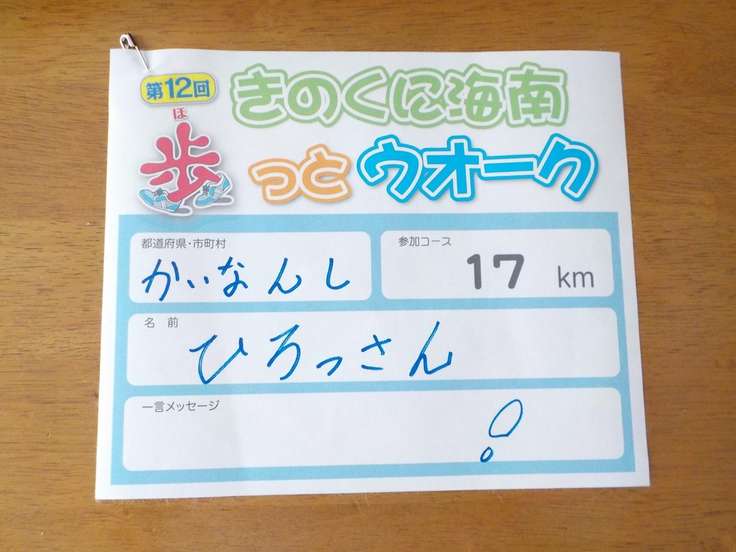 第12回 きのくに海南
ほ
歩っとウオーク
都道府県・市町村 参加コース
かいなんし 17 km
名 前
ひろっさん
一言メッセージ
！